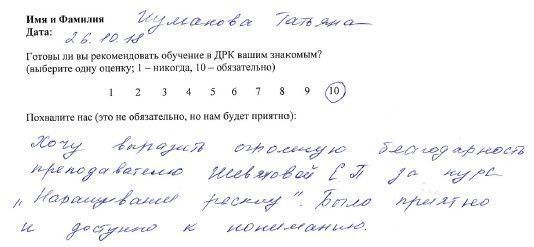 Имя и Фамилия Шуманова Татьяна
Дата: 26.10.18
Готовы ли вы рекомендовать обучение в ДРК вашим знакомым?
(выберите одну оценку; 1 – никогда, 10 – обязательно)
1 2 3 4 5 6 7 8 9 10
Похвалите нас (это не обязательно, но нам будет приятно):
Хочу выразить огромную благодарность
преподавателю С П за курс
„Наращивание ресниц". Было приятно
и доступно к пониманию.